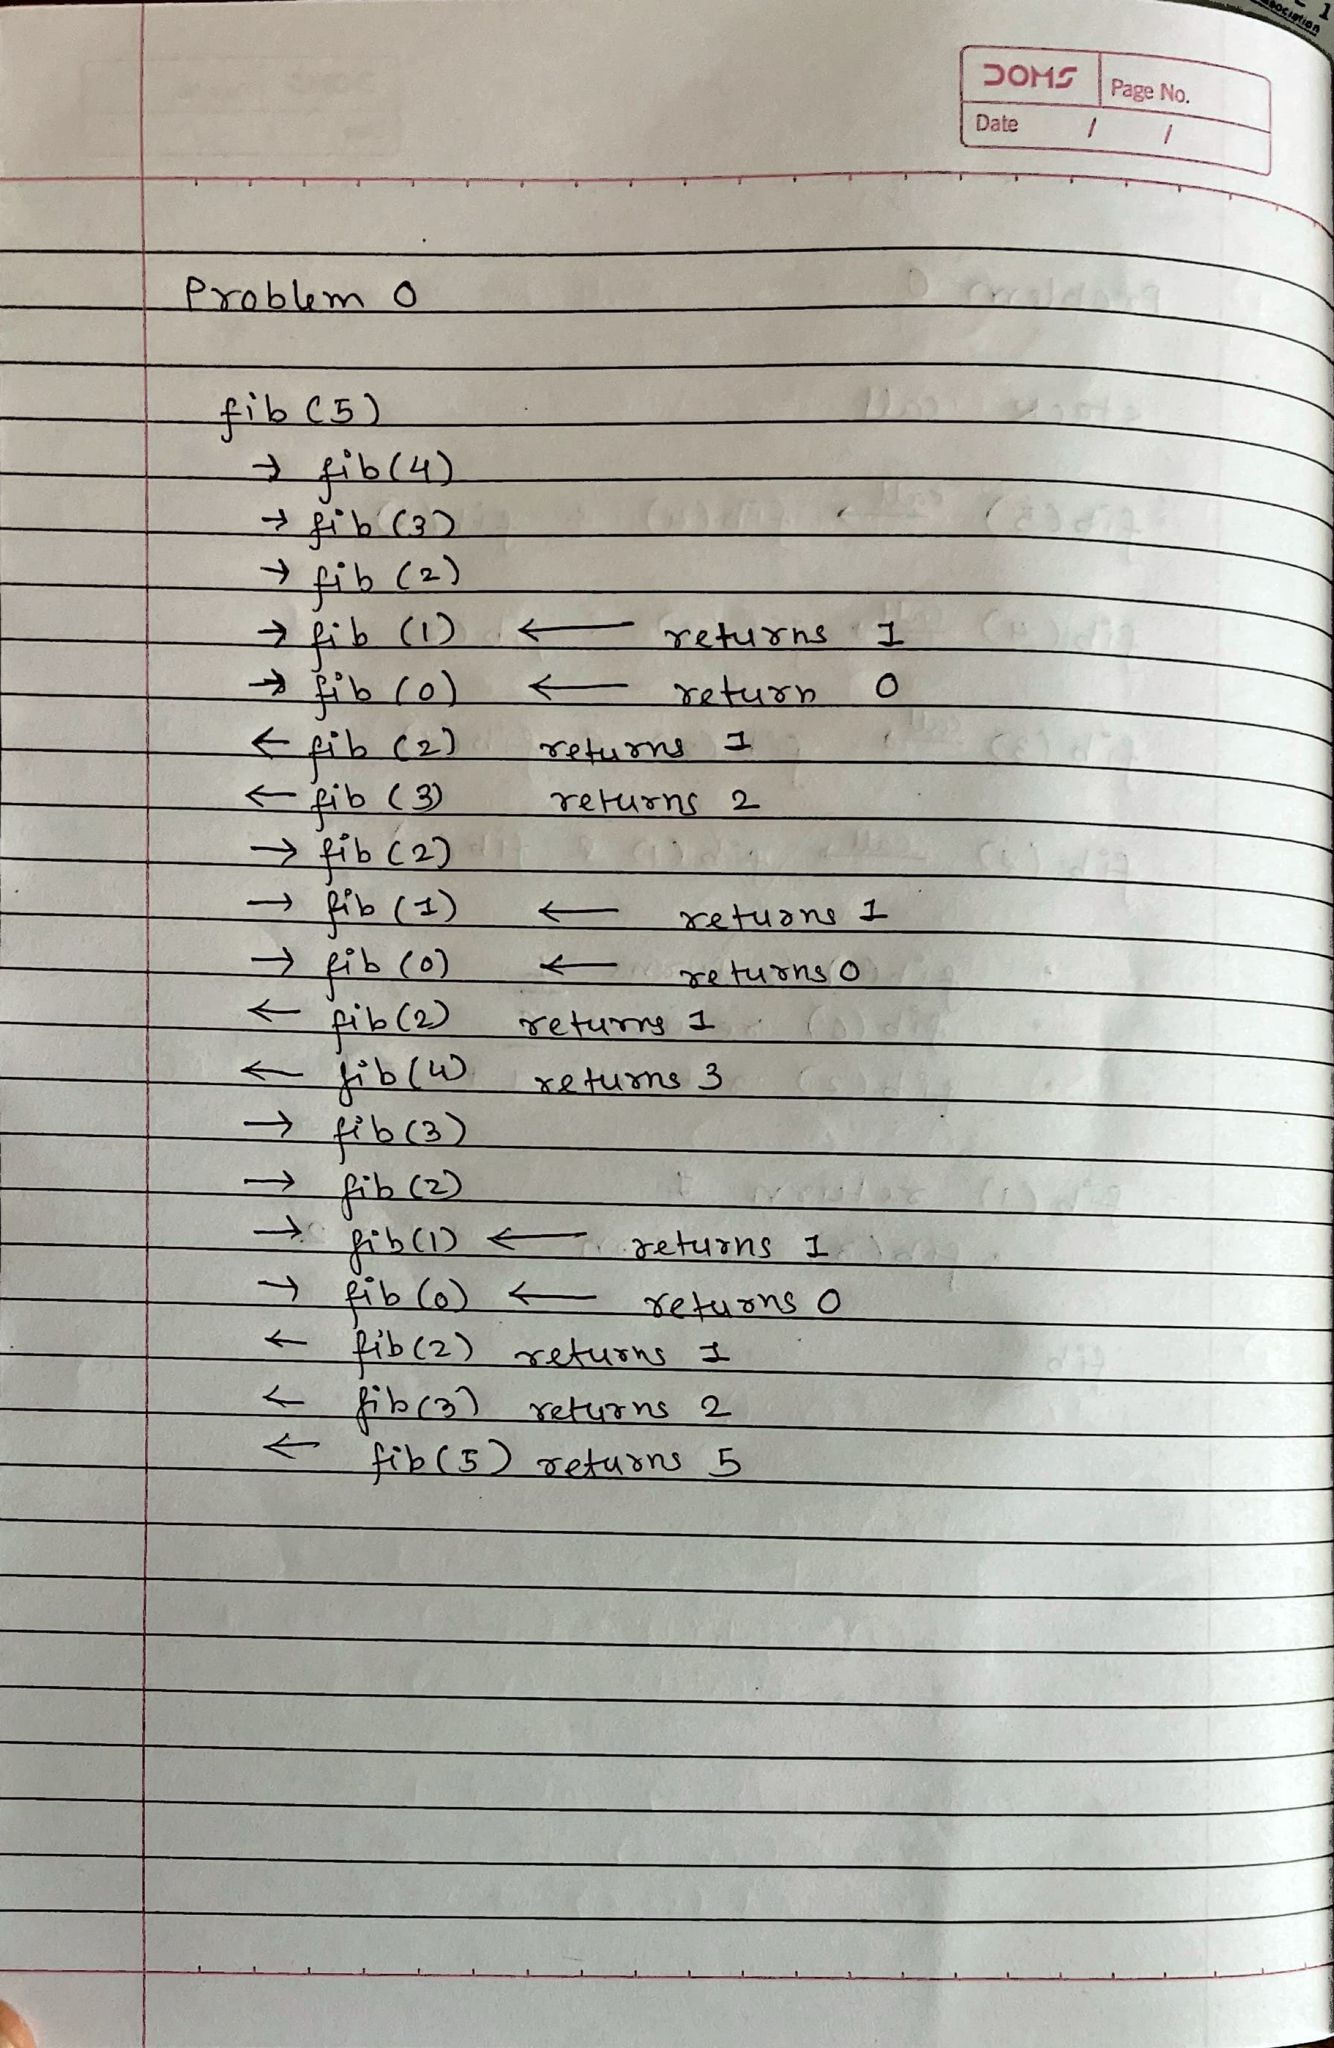 ociation
1
DOMS
Page No.
Date / /
Problem 0
fib (5)
→ fib (4)
→ fib (3)
→ fib (2)
→ fib (1) ← returns 1
→ fib (0) ← return 0
← fib (2) returns 1
← fib (3) returns 2
→ fib (2)
→ fib (1) ← returns 1
→ fib (0) ← returns 0
← fib (2) returns 1
← fib (4) returns 3
→ fib (3)
→ fib (2)
→ fib (1) ← returns 1
→ fib (0) ← returns 0
← fib (2) returns 1
← fib (3) returns 2
← fib (5) returns 5